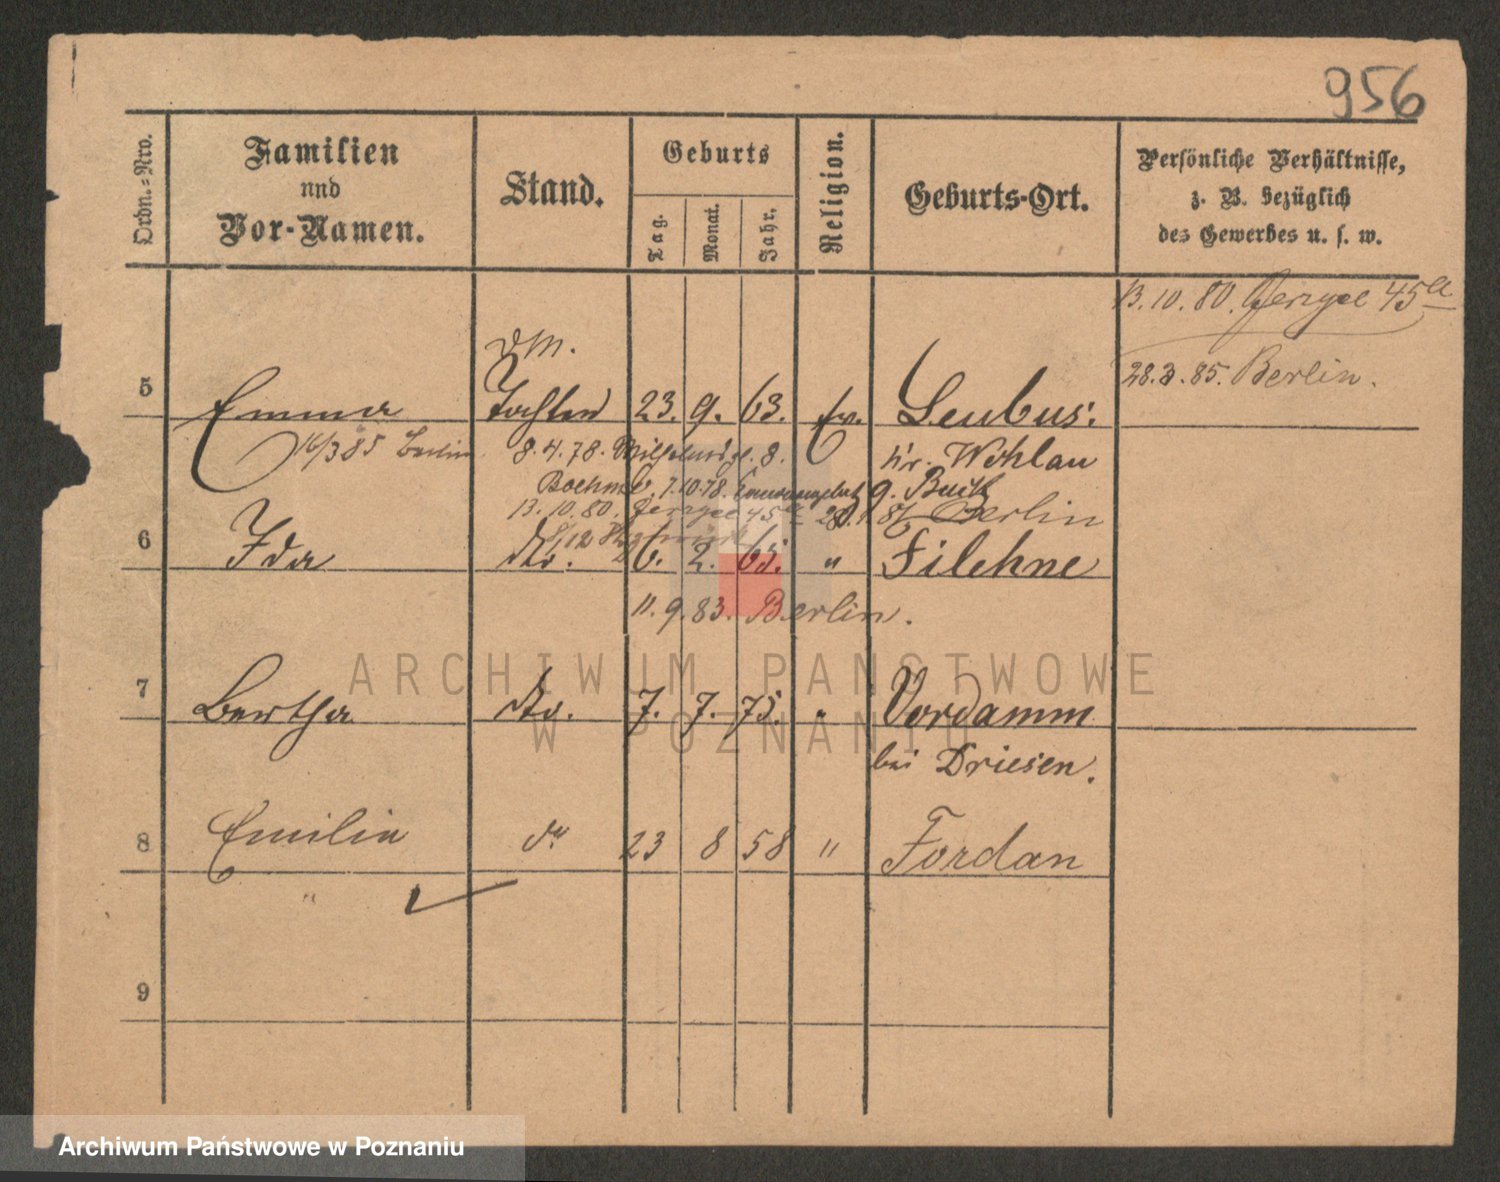 956
Ordn.=Nro.
Familien
und
Vor-Namen.
Stand.
Geburts
Tag.
Monat.
Jahr.
Religion.
Geburts-Ort.
Persönliche Verhältnisse,
z. B. bezüglich
des Gewerbes u. s. w.
13.10.80. Jerzyce 45a
28.3.85. Berlin.
5 Emma Tochter 23. 9. 63. ev. Leubus.
16/3 85 Berlin 8.4.78. Kr. Wohlau
Boehme. 7.10.78. g. Buck
13.10.80. Jerzyce 45a Berlin
6 Ida do. 6. 2. 65. " Filehne
11.9.83. Berlin.
7 Bertha do. 7. 7. 75. " Vordamm
bei Driesen.
8 Emilie do 23 8 58 " Fordan
9
ARCHIWUM PAŃSTWOWE
W POZNANIU
Archiwum Państwowe w Poznaniu